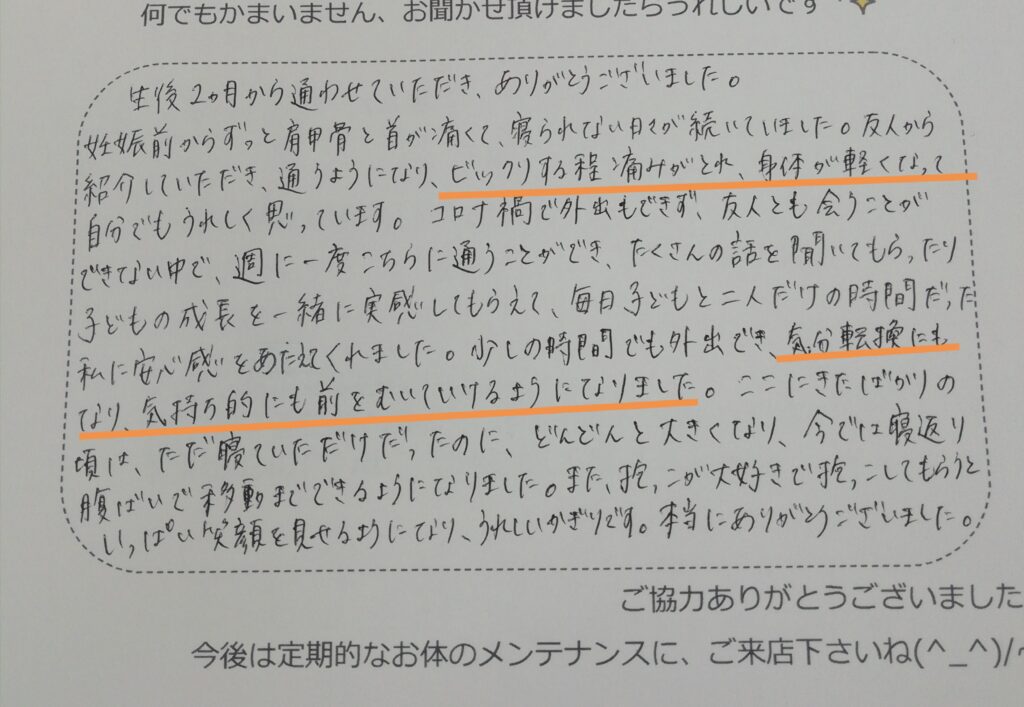 何でもかまいません、お聞かせ頂けましたらうれしいです
生後2ヵ月から通わせていただき、ありがとうございました。
妊娠前からずっと肩甲骨と首が痛くて、寝られない日々が続いていました。友人から
紹介していただき、通うようになり、ビックリする程痛みがとれ、身体が軽くなって
自分でもうれしく思っています。コロナ禍で外出もできず、友人とも会うことが
できない中で、週に一度こちらに通うことができ、たくさんの話を聞いてもらったり
子どもの成長を一緒に実感してもらえて、毎日子どもと二人だけの時間だった
私に安心感をあたえてくれました。少しの時間でも外出でき、気分転換にも
なり、気持ち的にも前をむいていけるようになりました。ここにきたばかりの
頃は、ただ寝ていただけだったのに、どんどんと大きくなり、今では寝返り
腹ばいで移動までできるようになりました。また、抱っこが大好きで抱っこしてもらうと
いっぱい笑顔を見せるようになり、うれしいかぎりです。本当にありがとうございました。
ご協力ありがとうございました
今後は定期的なお体のメンテナンスに、ご来店下さいね(^_^)/~